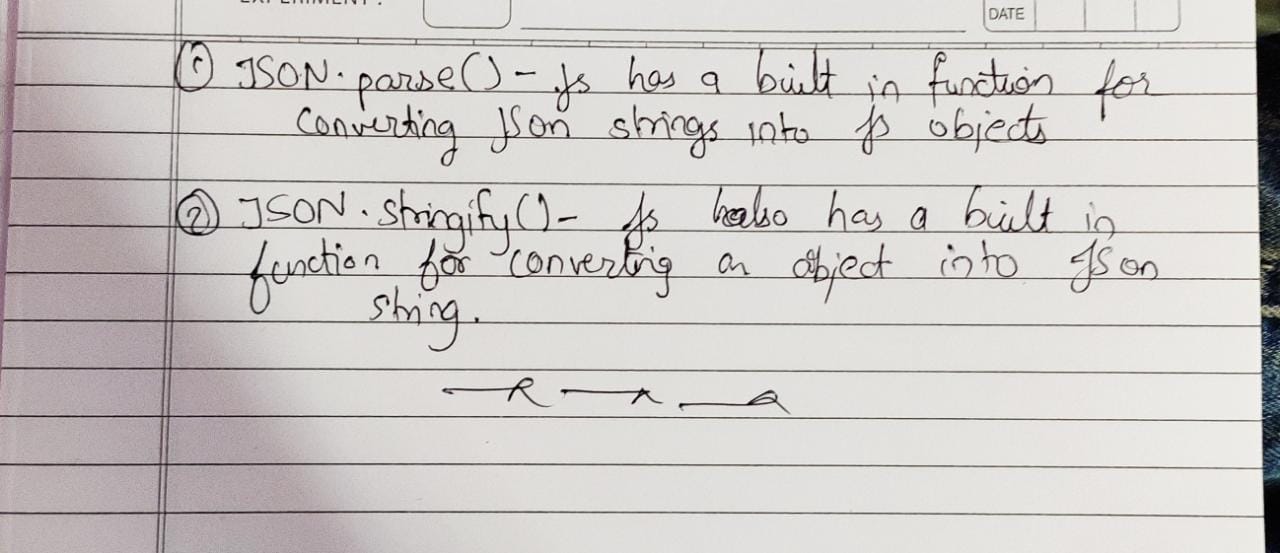 EXPERIMENT:
DATE
① JSON.parse() - Js has a built in function for
converting JSon strings into Js objects
② JSON.stringify() - Js also has a built in
function for converting an object into JSon
string.